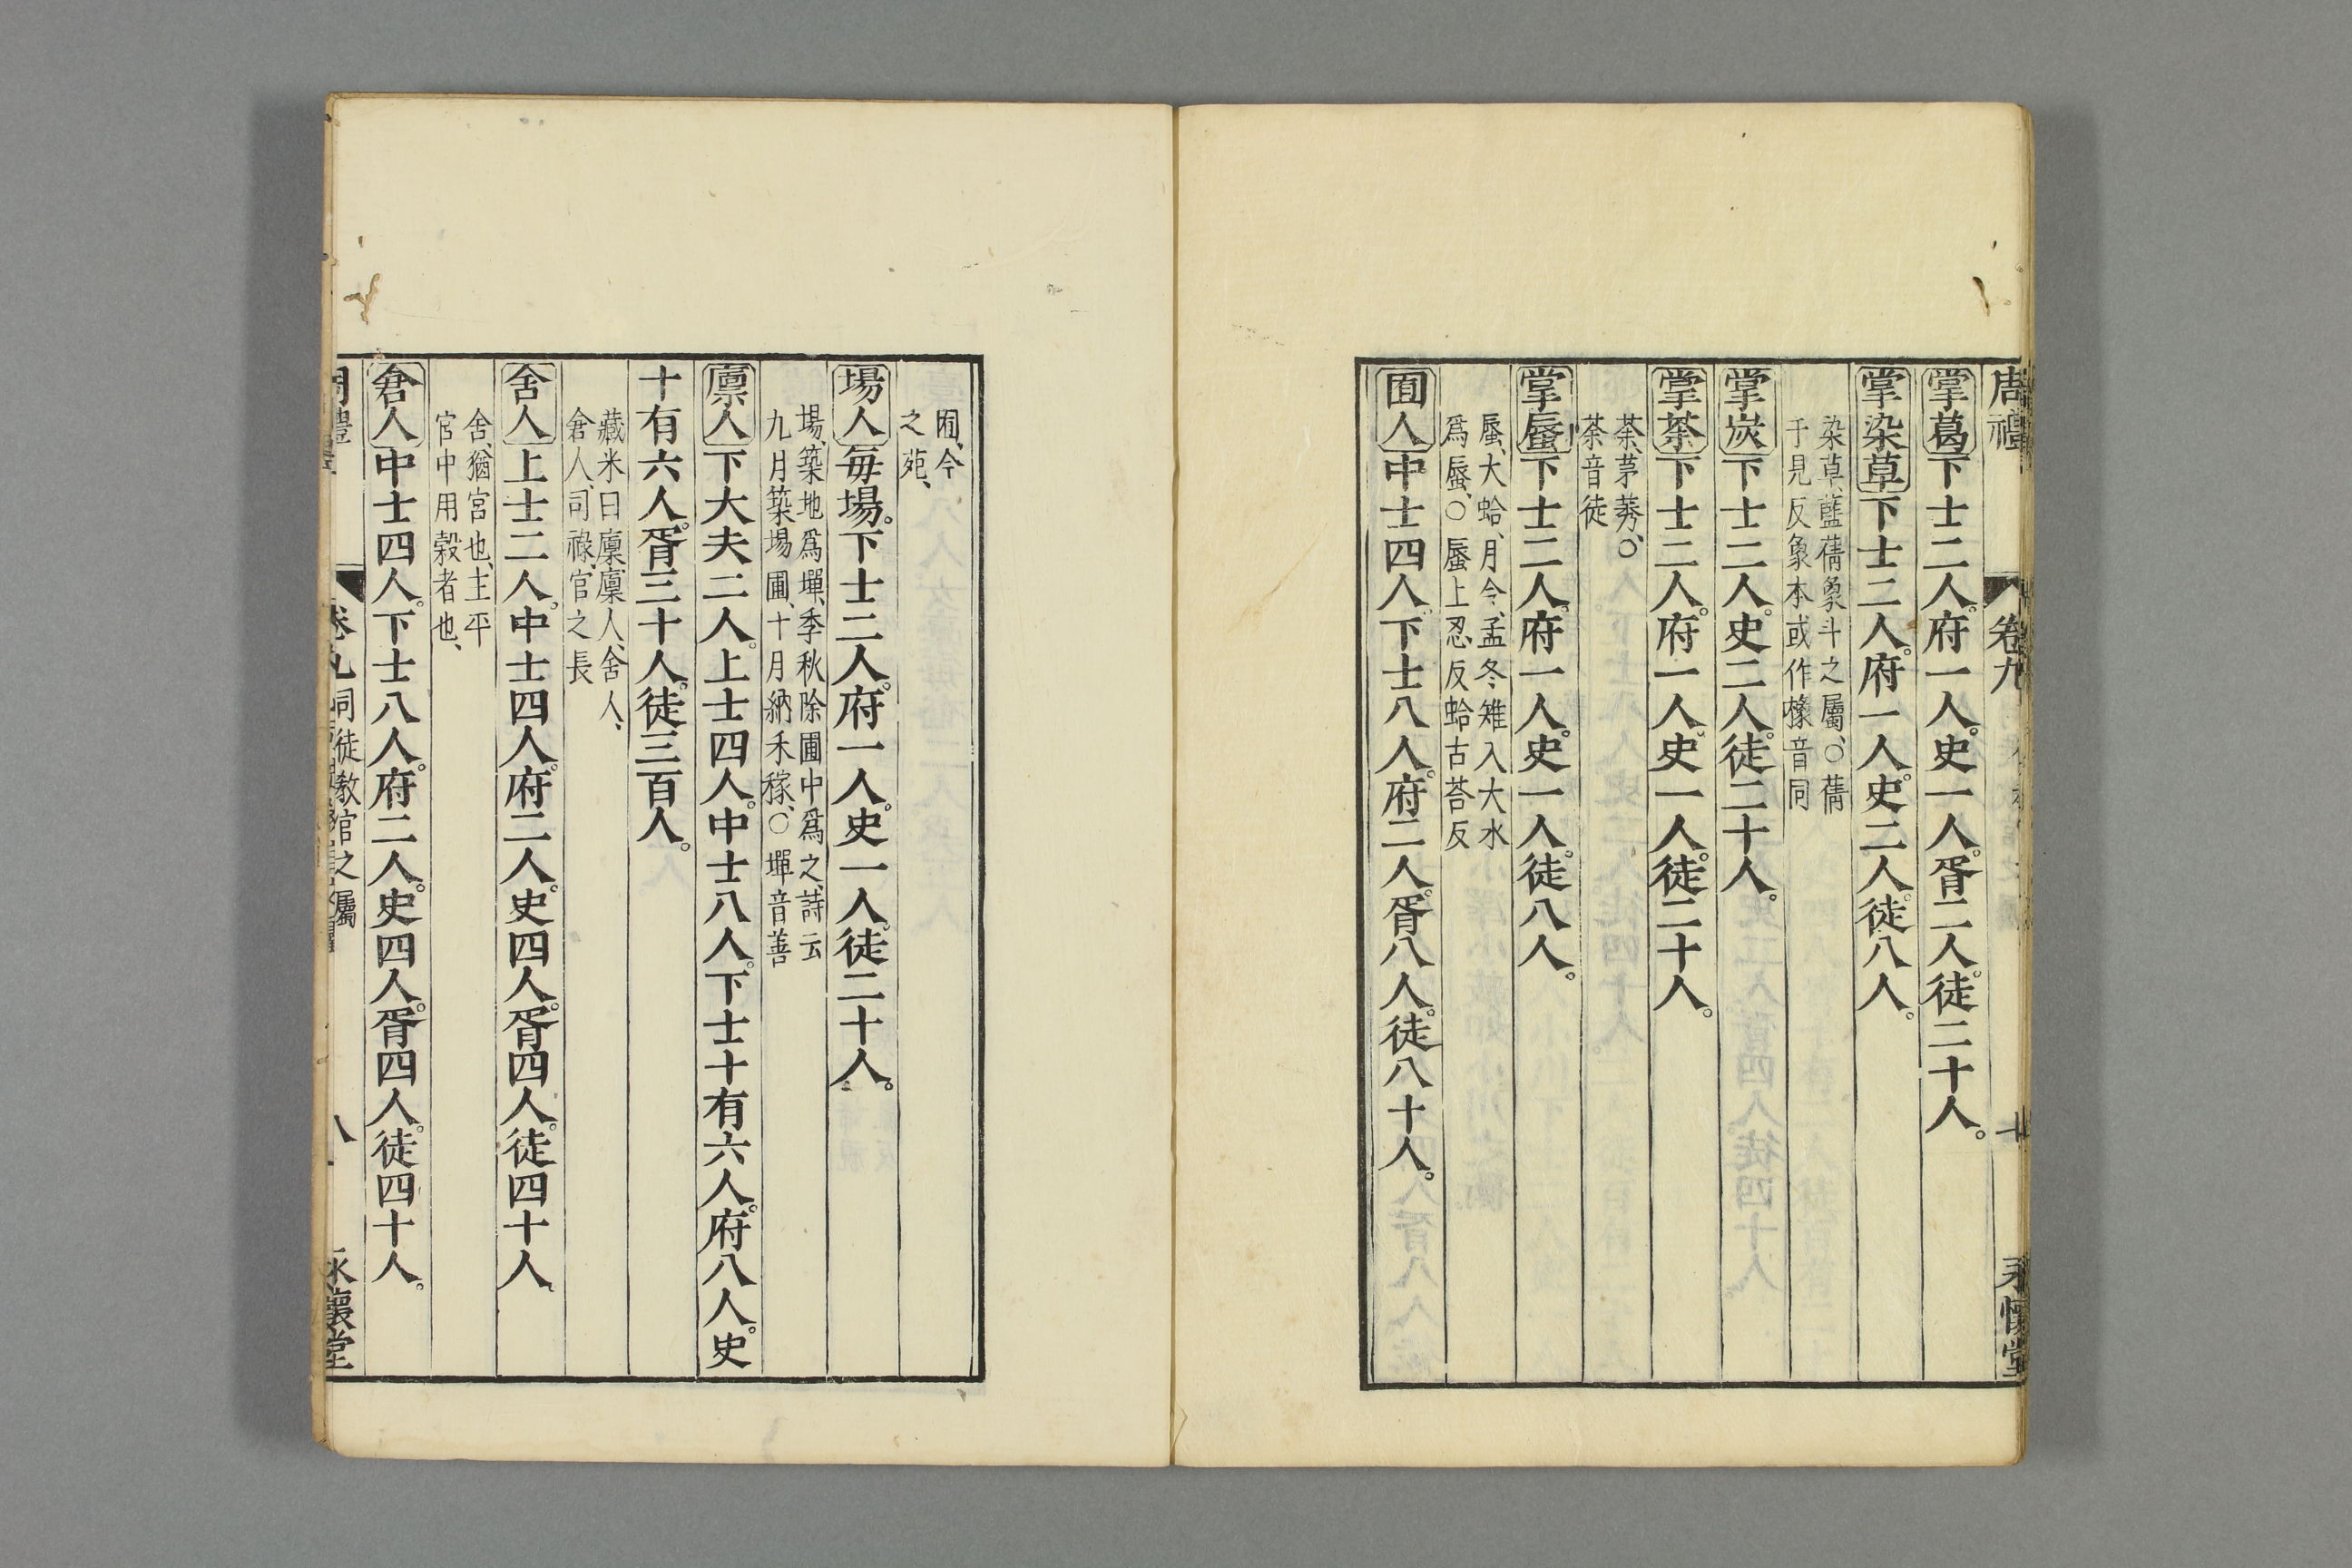 周禮 卷九 永懷堂
掌葛下士二人。府一人。史一人。胥二人。徒二十人。
掌染草下士二人。府一人。史二人。徒八人。
染草、藍蒨象斗之屬、○蒨
千見反象本或作橡音同
掌炭下士二人。史二人。徒二十人。
掌荼下士二人。府一人。史一人。徒二十人。
荼、茅莠、○
荼音徒
掌蜃下士二人。府一人。史一人。徒八人。
蜃、大蛤、月令、孟冬雉入大水
爲蜃、○蜃上忍反蛤古荅反
囿人中士四人。下士八人。府二人。胥八人。徒八十人。
囿、今
之苑、
場人每場。下士二人。府一人。史一人。徒二十人。
場、築地爲墠、季秋除圃中爲之、詩云
九月築場圃、十月納禾稼、○墠音善
廩人下大夫二人。上士四人。中士八人。下士十有六人。府八人。史
十有六人。胥三十人。徒三百人。
藏米曰廩廩人、舍人、
倉人、司祿、官之長
舍人上士二人。中士四人。府二人。史四人。胥四人。徒四十人
舍、猶宮也、主平
宮中用穀者也、
倉人中士四人。下士八人。府二人。史四人。胥四人。徒四十人。
卷九 司徒教官之屬 八 永懷堂